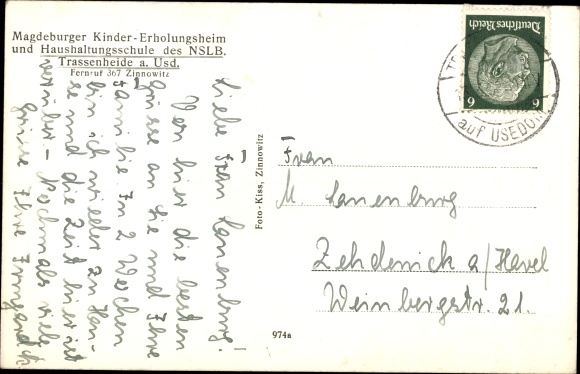 Magdeburger Kinder-Erholungsheim
und Haushaltungsschule des NSLB.
Trassenheide a. Usd.
Fernruf 367 Zinnowitz
Liebe Frau Lanenburg!
Von hier die besten
Grüsse an Sie und Ihre
Familie. In 2 Wochen
bin ich wieder zu Hau-
se und die Zeit hier ist
vorüber. – Nochmals viele
Grüsse Ihre Irmgard
Foto-Kiss, Zinnowitz
974a
Deutsches Reich
6 6
auf USEDOM
Frau
M. Lanenburg
Zehdenick a/Havel
Weinbergstr. 21.